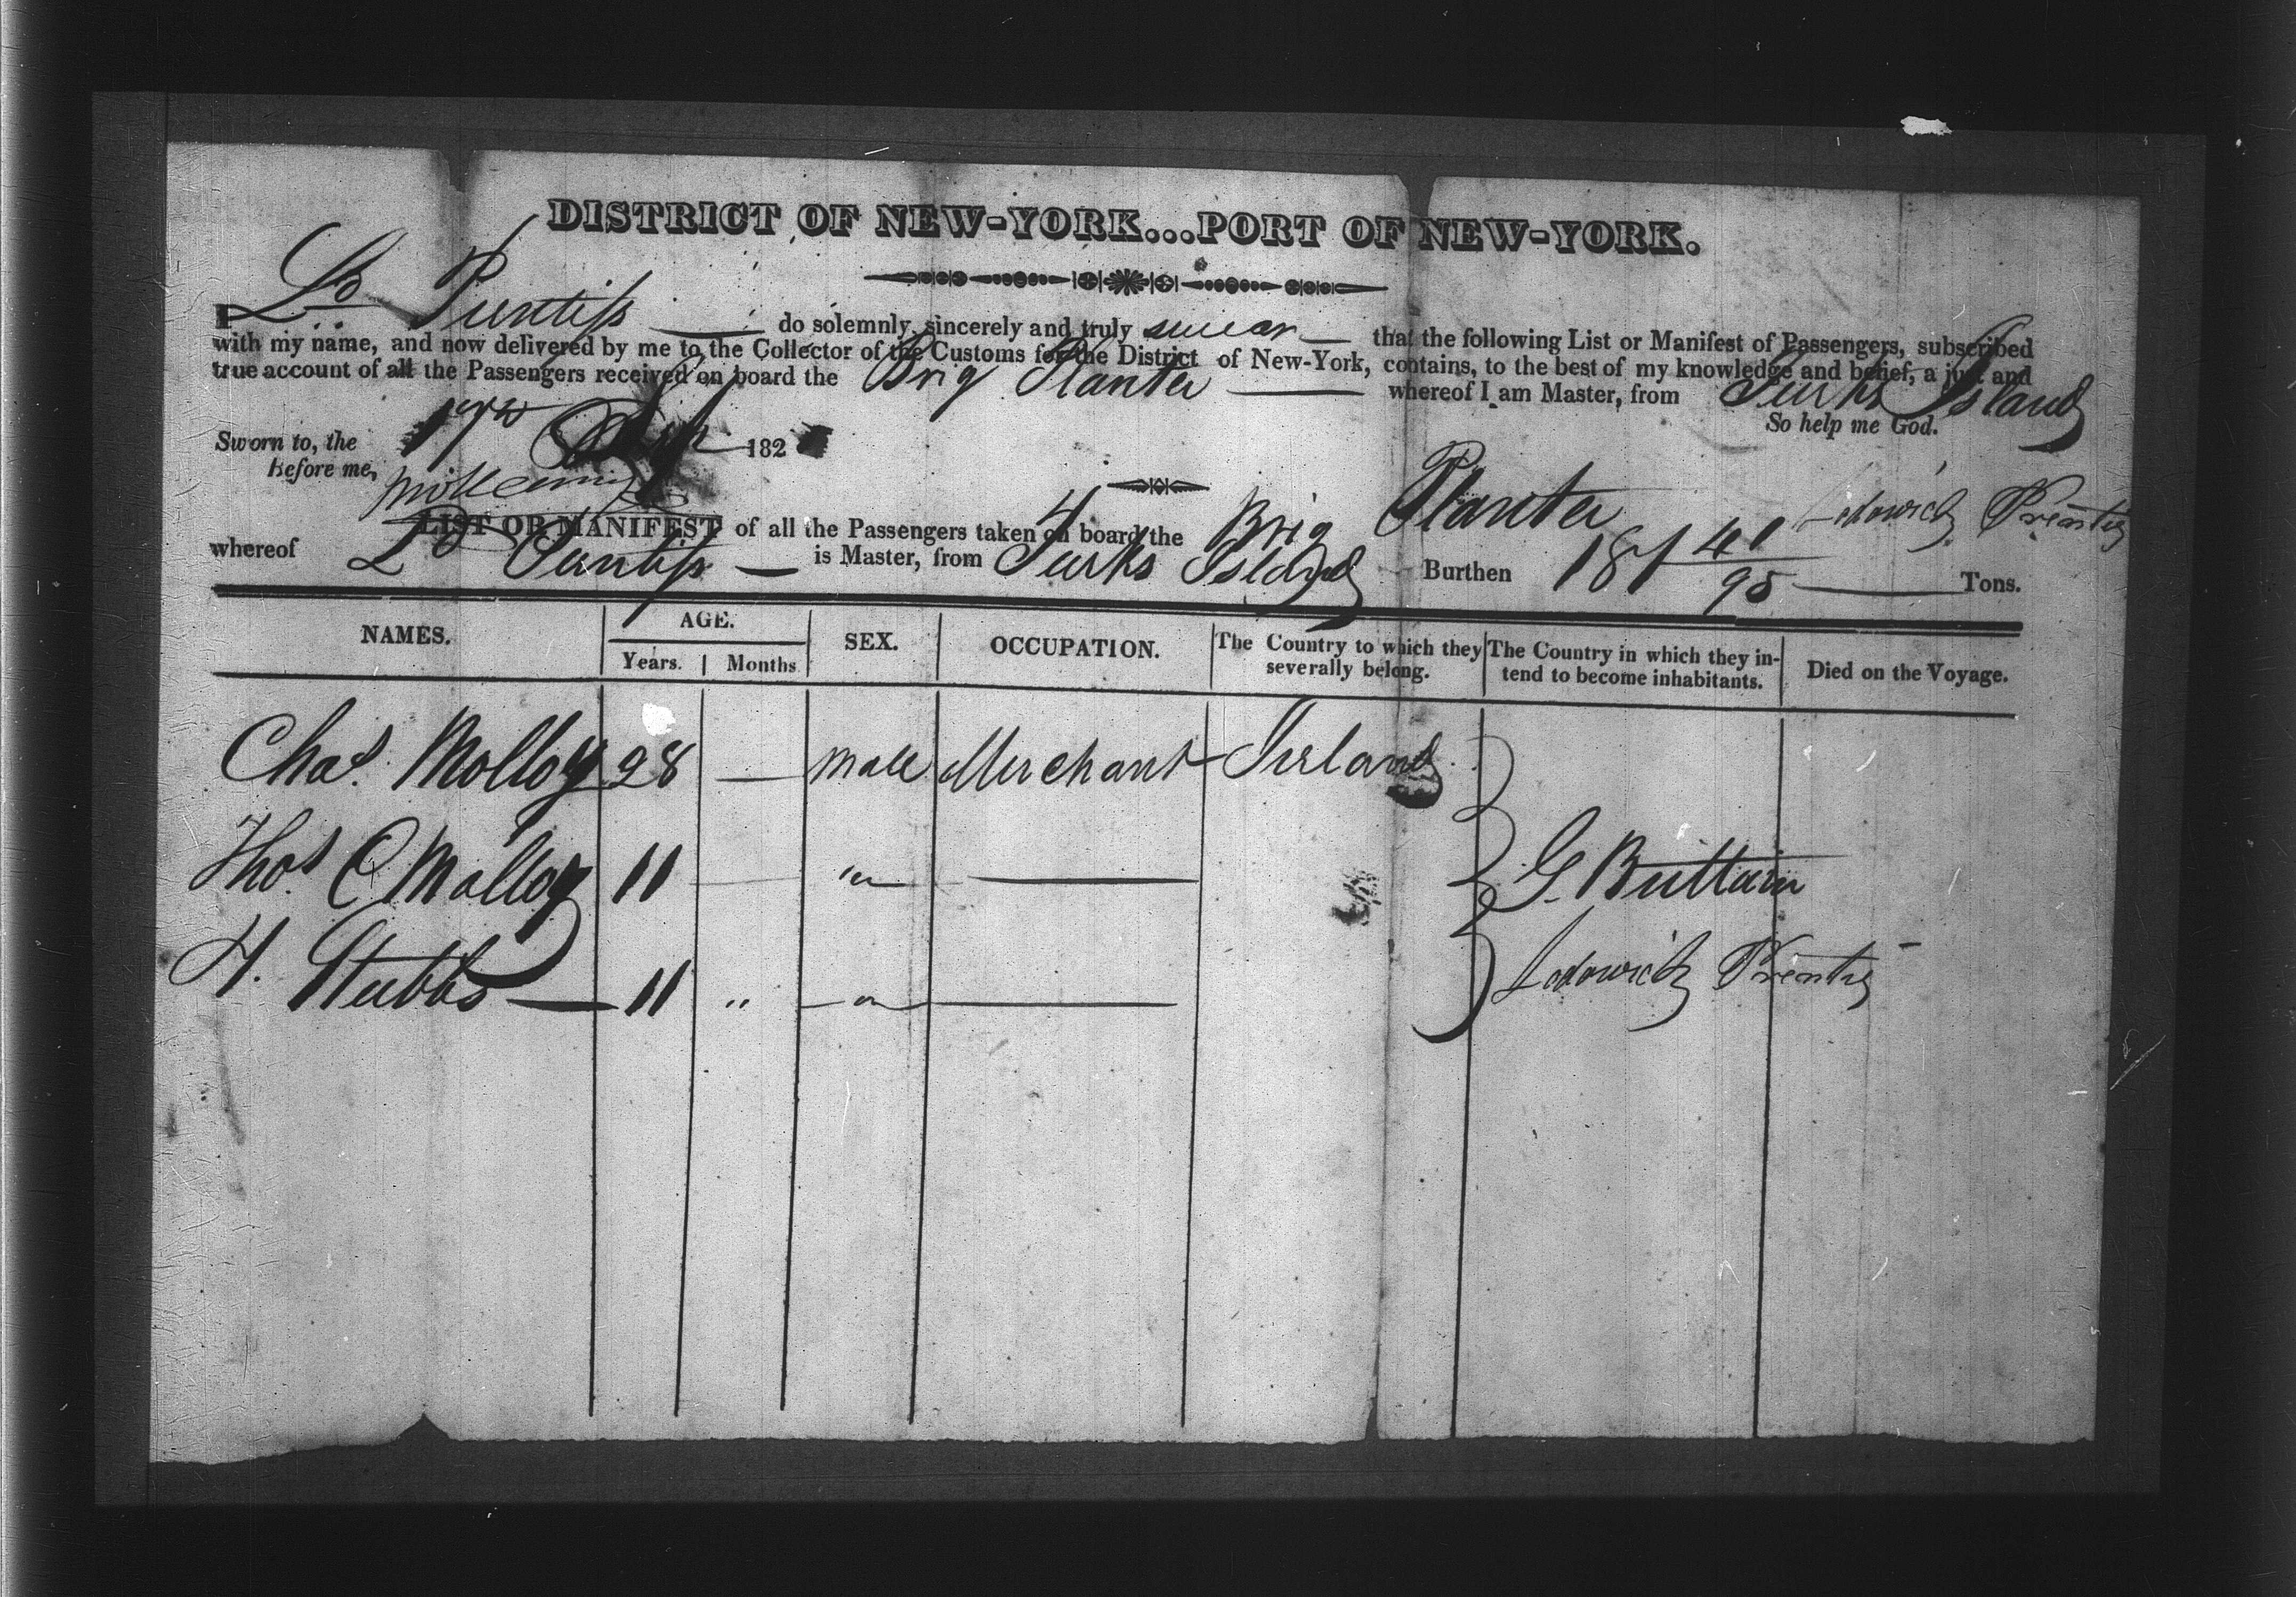 DISTRICT OF NEW-YORK...PORT OF NEW-YORK.
I Lo Puntiss do solemnly, sincerely and truly swear that the following List or Manifest of Passengers, subscribed
with my name, and now delivered by me to the Collector of the Customs for the District of New-York, contains, to the best of my knowledge and belief, a just and
true account of all the Passengers received on board the Brig Planter whereof I am Master, from Turks Island
So help me God.
Sworn to, the 17th 182
Before me,
Lodowick Prentiss
LIST OR MANIFEST of all the Passengers taken on board the Brig Planter
whereof Lo Puntiss is Master, from Turks Island Burthen 187 41/95 Tons.
NAMES. AGE. Years. Months. SEX. OCCUPATION. The Country to which they severally belong. The Country in which they intend to become inhabitants. Died on the Voyage.
Chas. Molloy 28 — Male Merchant Ireland
Thos. C Molloy 11 " G. Brittain
H. Stubbs 11 " "
Lodowick Prentiss